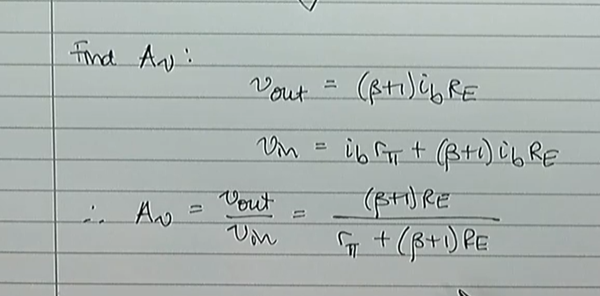 Find Av:
vout = (β+1) ib RE
vin = ib rπ + (β+1) ib RE
∴ Av = vout/vin = (β+1) RE / rπ + (β+1) RE